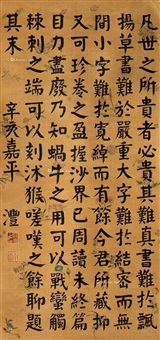 凡世之所貴者必貴其難真書難於飄
揚草書難於嚴重大字難於結密而無
間小字難於寬綽而有餘今君所藏抑
又可珍卷之盈握沙界已周讀未終篇
目力盡廢乃知蝸牛之角可以戰蠻觸
棘刺之端可以刻沐猴嗟嘆之餘聊題
其末
辛亥嘉平
澧